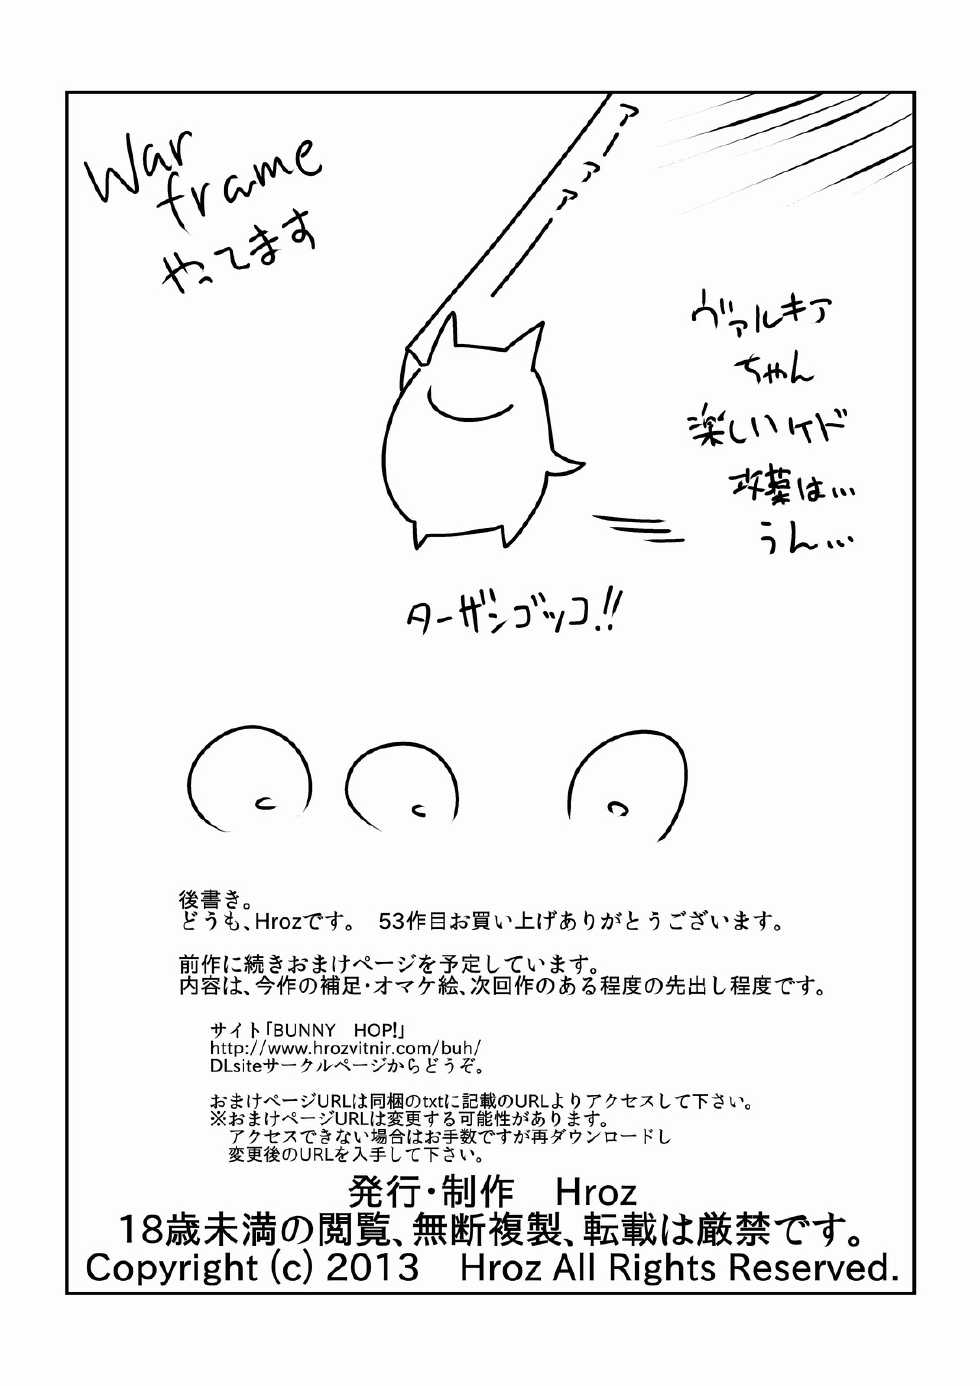 War
frame
やってます
アーアアー
ヴァルキア
ちゃん
楽しいケド
攻菒は…
うん…
ターザンゴッコ!!
後書き。
どうも、Hrozです。　53作目お買い上げありがとうございます。
前作に続きおまけページを予定しています。
内容は、今作の補足・オマケ絵、次回作のある程度の先出し程度です。
サイト「BUNNY　HOP!」
http://www.hrozvitnir.com/buh/
DLsiteサークルページからどうぞ。
おまけページURLは同梱のtxtに記載のURLよりアクセスして下さい。
※おまけページURLは変更する可能性があります。
アクセスできない場合はお手数ですが再ダウンロードし
変更後のURLを入手して下さい。
発行・制作　Hroz
18歳未満の閲覧、無断複製、転載は厳禁です。
Copyright (c) 2013　Hroz All Rights Reserved.